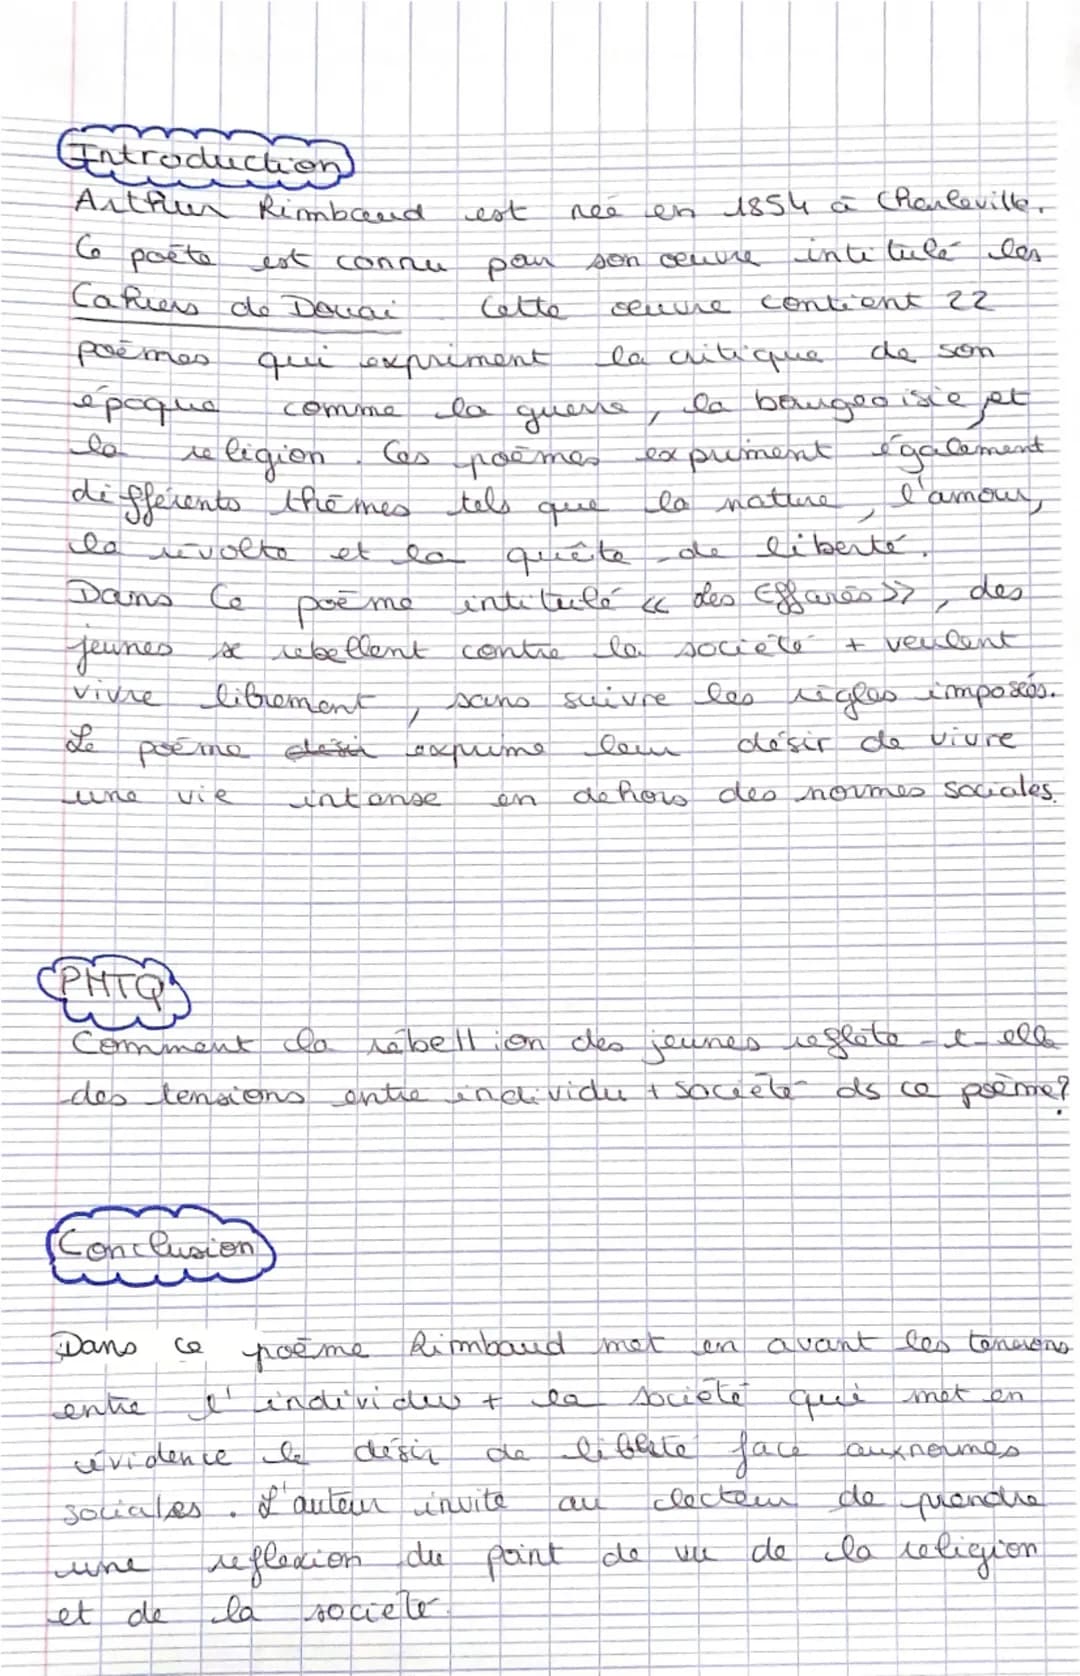 Introduction
Arthur Rimbaud est née en 1854 à Charleville.
Ce poète est connu pour son œuvre intitulé les
Cahiers de Douai. Cette œuvre contient 22
poèmes qui expriment la critique de son
époque comme la guerre, la bourgeoisie et
la religion. Ces poèmes expriment également
différents thèmes tels que la nature, l'amour,
la révolte et la quête de liberté.
Dans ce poème intitulé « des Effarés », des
jeunes se rebellent contre la société + veulent
vivre librement, sans suivre les règles imposées.
Le poème exprime leur désir de vivre
une vie intense en dehors des normes sociales.
PHTQ
Comment la rébellion des jeunes reflète-t-elle
des tensions entre individu + société ds ce poème?
Conclusion
Dans ce poème Rimbaud met en avant les tensions
entre l'individu + la société qui met en
évidence le désir de liberté face aux normes
sociales. L'auteur invite au lecteur de prendre
une reflexion du point de vu de la religion
et de la société.